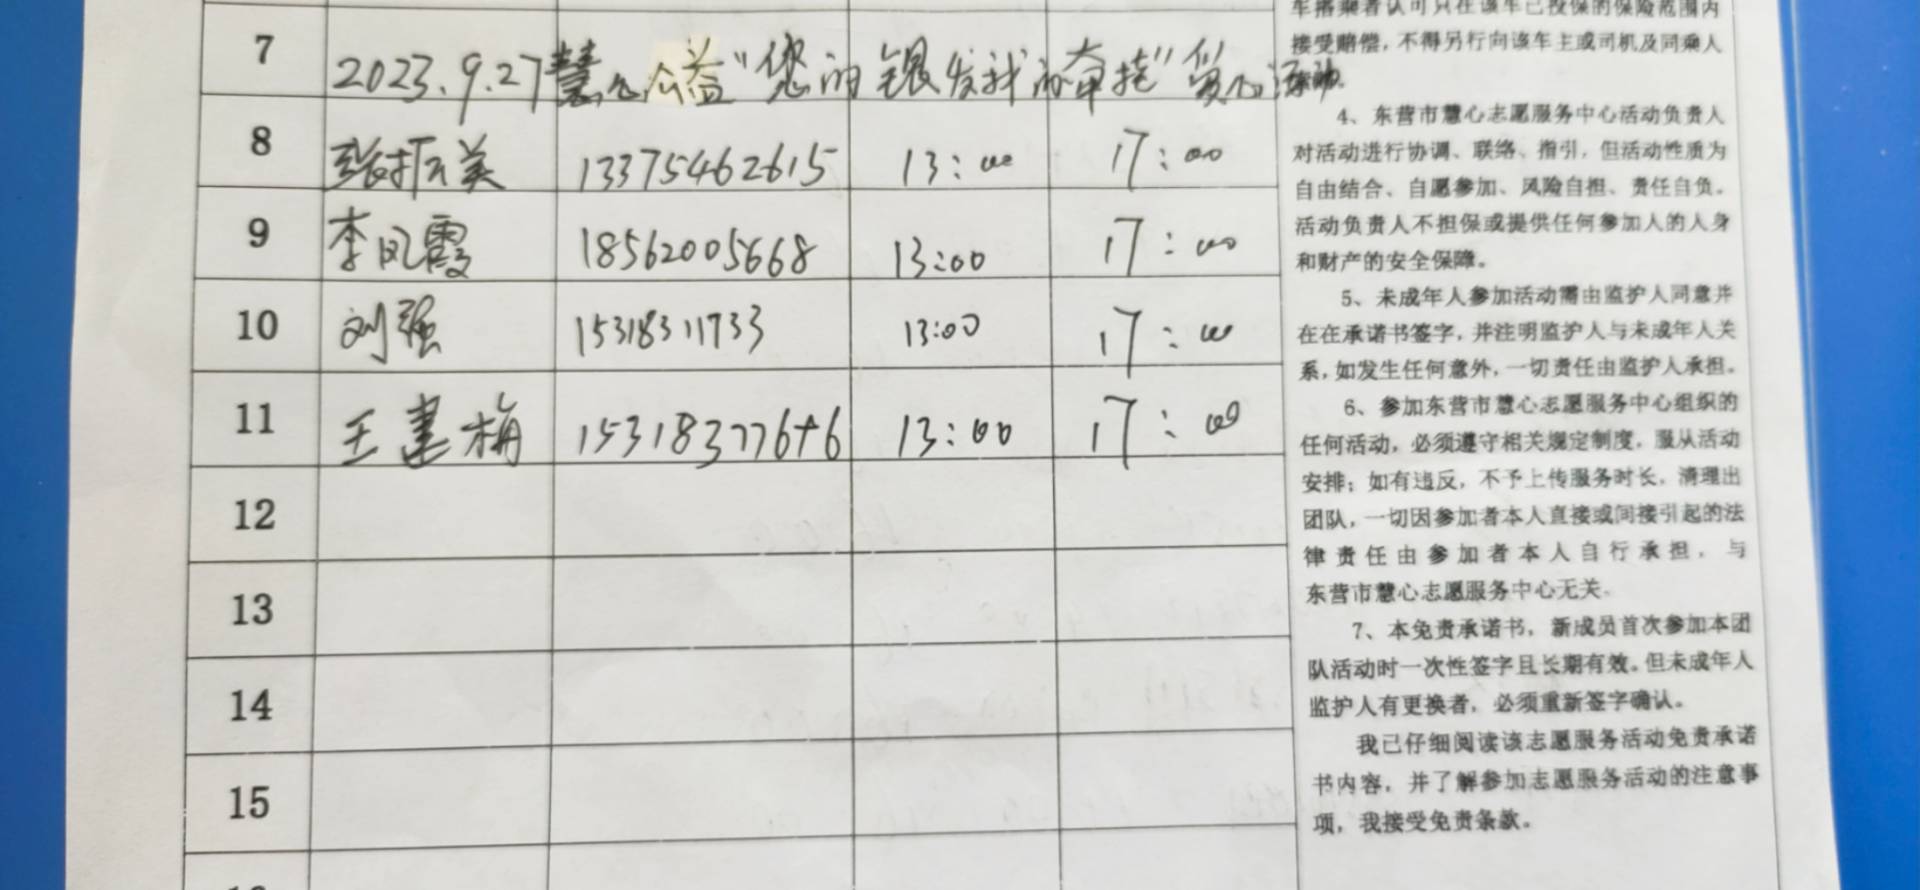 7
2023.9.27慧心公益“您的银发我的牵挂”爱心活动
8 张振美 13375462615 13:00 17:00
9 李凤霞 18562005668 13:00 17:00
10 刘强 15318311733 13:00 17:00
11 王建梅 153183776+6 13:00 17:00
12
13
14
15
车搭乘者认可只在该车已投保的保险范围内
接受赔偿,不得另行向该车主或司机及同乘人
4、东营市慧心志愿服务中心活动负责人
对活动进行协调、联络、指引,但活动性质为
自由结合、自愿参加、风险自担、责任自负。
活动负责人不担保或提供任何参加人的人身
和财产的安全保障。
5、未成年人参加活动需由监护人同意并
在在承诺书签字,并注明监护人与未成年人关
系,如发生任何意外,一切责任由监护人承担。
6、参加东营市慧心志愿服务中心组织的
任何活动,必须遵守相关规定制度,服从活动
安排;如有违反,不予上传服务时长,清理出
团队,一切因参加者本人直接或间接引起的法
律责任由参加者本人自行承担,与
东营市慧心志愿服务中心无关。
7、本免责承诺书,新成员首次参加本团
队活动时一次性签字且长期有效。但未成年人
监护人有更换者,必须重新签字确认。
我已仔细阅读该志愿服务活动免责承诺
书内容,并了解参加志愿服务活动的注意事
项,我接受免责条款。